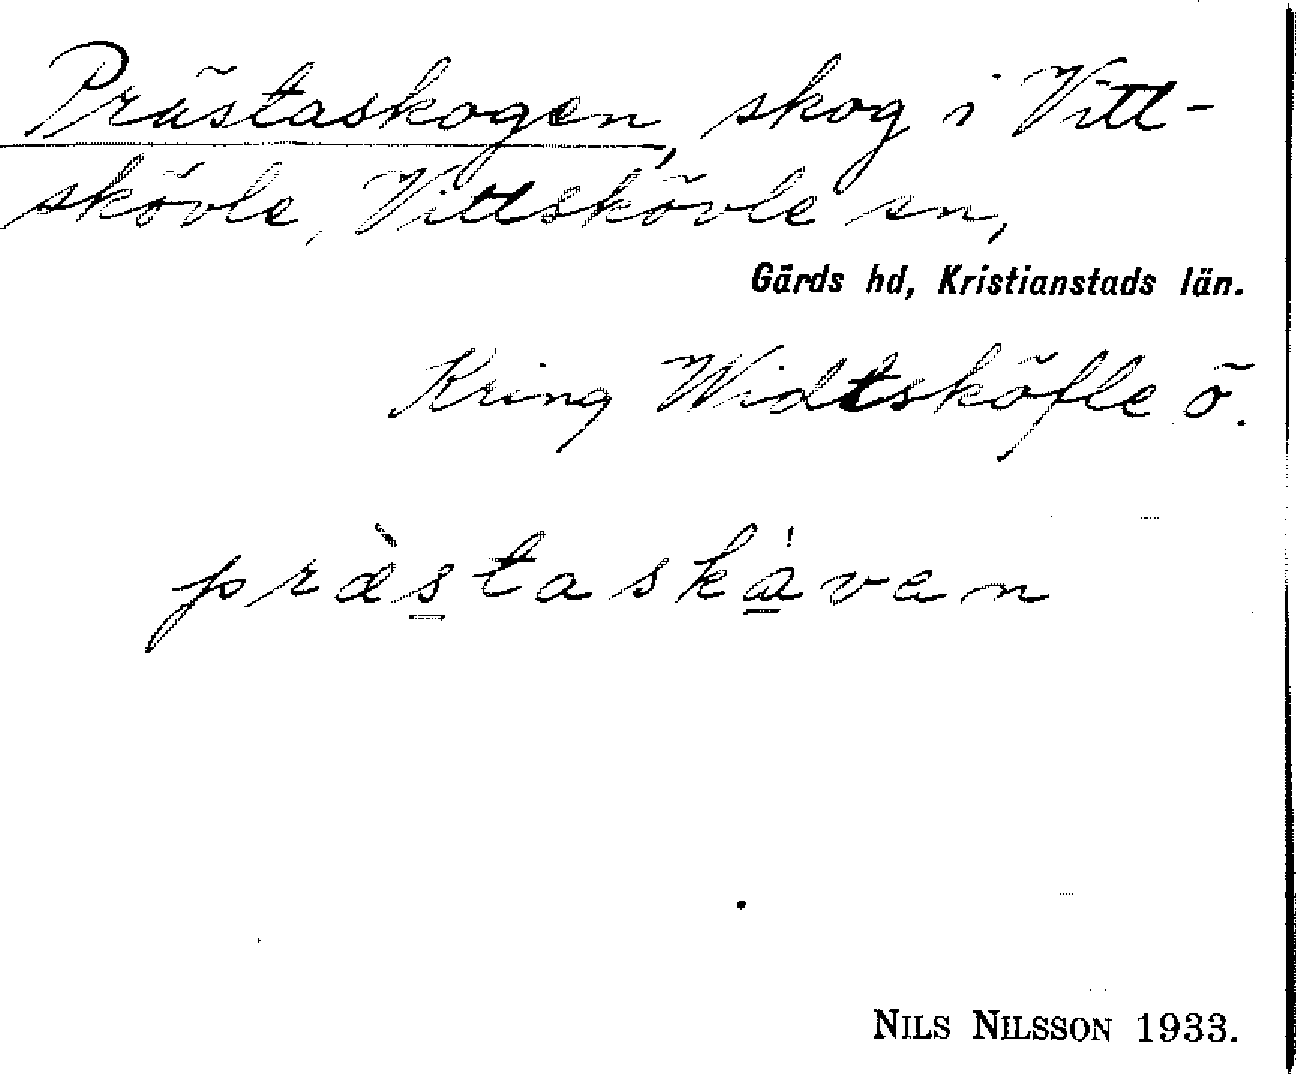 Prästaskogen, skog i Vitt-
skövle, Vittskövle sn,
Gärds hd, Kristianstads län.
Kring Widtsköfle ö.
præ̀s̲taská̲ven
NILS NILSSON 1933.